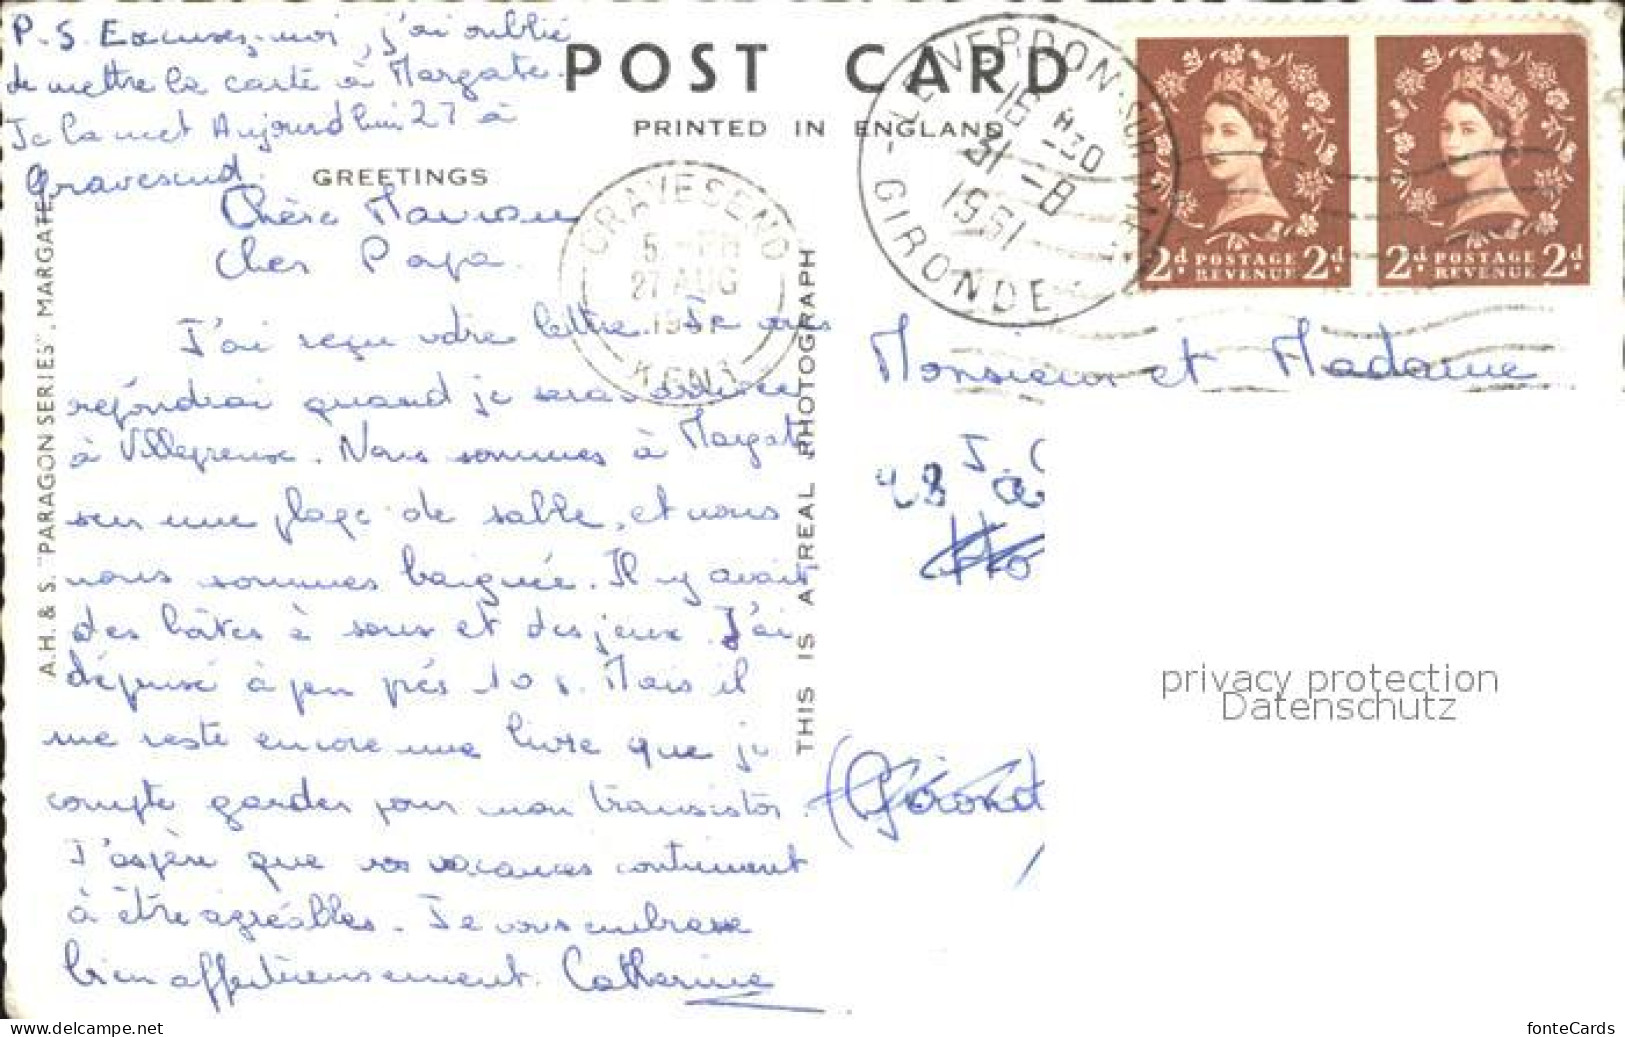 P.S. Excusez-moi, j'ai oublié
de mettre la carte à Margate.
Je la met Aujourd'hui 27 à
Gravesend.
POST CARD
PRINTED IN ENGLAND
GREETINGS
A.H. & S. "PARAGON SERIES", MARGATE.
THIS IS A REAL PHOTOGRAPH
GRAVESEND
5. -PM
27 AUG
KENT
LE VERDON-SUR-MER
16 H 30
31 -8
1961
GIRONDE
2d POSTAGE REVENUE 2d
2d POSTAGE REVENUE 2d
Chère Maman
cher Papa.
J'ai reçu votre lettre. Je vous
répondrai quand je serai arrivée
à Villepreux. Nous sommes à Margate,
sur une plage de sable, et nous
nous sommes baignée. Il y avait
des bâtes à sous et des jeux. J'ai
dépensé à peu prés 10 s. Mais il
me reste encore une livre que je
compte garder pour mon transistor.
J'espère que vos vacances continuent
à être agréables. Je vous embrasse
bien affectueusement. Catherine
Monsieur et Madame
J.
(Girond
privacy protection
Datenschutz
www.delcampe.net
fonteCards